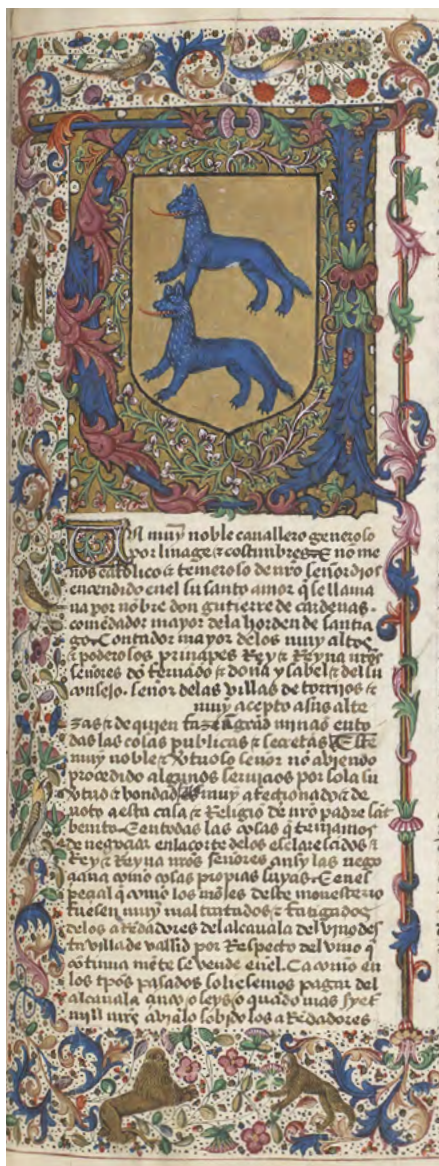 Un muy noble cauallero generoso
por linage & costumbres & no me
nos catolico & temeroso de nro señor dios
encendido en el su santo amor q se llama
ua por nõbre don gutierre de cardenas.
comẽdador mayor dela horden de santia
go. Contador mayor delos muy altos
& poderosos prinçipes Rey & Reyna nros
señores dõ fernãdo & doña ysabel & del su
consejo. señor delas villas de torrijos &
muy acepto a sus alte
zas & de quien fazẽ grãd
das las cosas publicas & secretas. Este
muy noble & ṽtuoso señor no abiendo
proçedido algunos seruiçios por sola su
ṽtud & bondad es muy afectionado & de
uoto a esta casa & Religiõ de nr̃o padre sãt
benito. & en todas las cosas q teniamos
de negoçiar en la corte delos esclareçidos &
Rey & Reyna nros señores ansy las nego
çiaua como cosas propias suyas. & en es
peçial q como los mõies deste monesterio
fuesen muy mal tratados & fatigados
delos aRẽdadores del alcauala del vino des
ta villa de vallid por Respecto del vino q
cõtinua mẽte se vende en el. Ca como en
los tp̃os pasados soliesemos pagar del
alcauala çinco o seys o quãdo mas syet
mill mrs aviãlo sobido los aRẽdadores